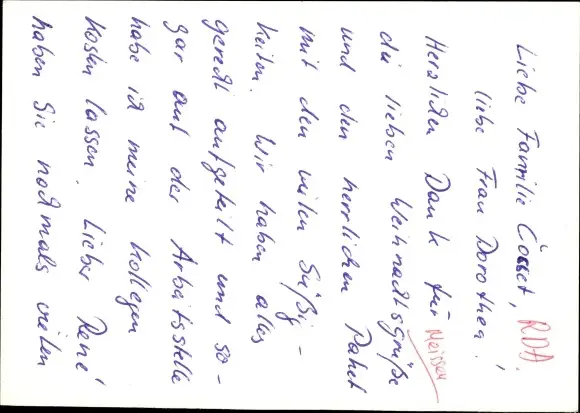 Liebe Familie Cosset, RDA.
liebe Frau Dorothea!
Herzlichen Dank für Meissen
die lieben Weihnachtsgrüße
und den herrlichen Paket
mit den vielen Süßig-
keiten. Wir haben alles
gerecht aufgeteilt und so-
gar auf der Arbeitsstelle
habe ich meine Kollegen
kosten lassen. Lieber René
haben Sie nochmals vielen